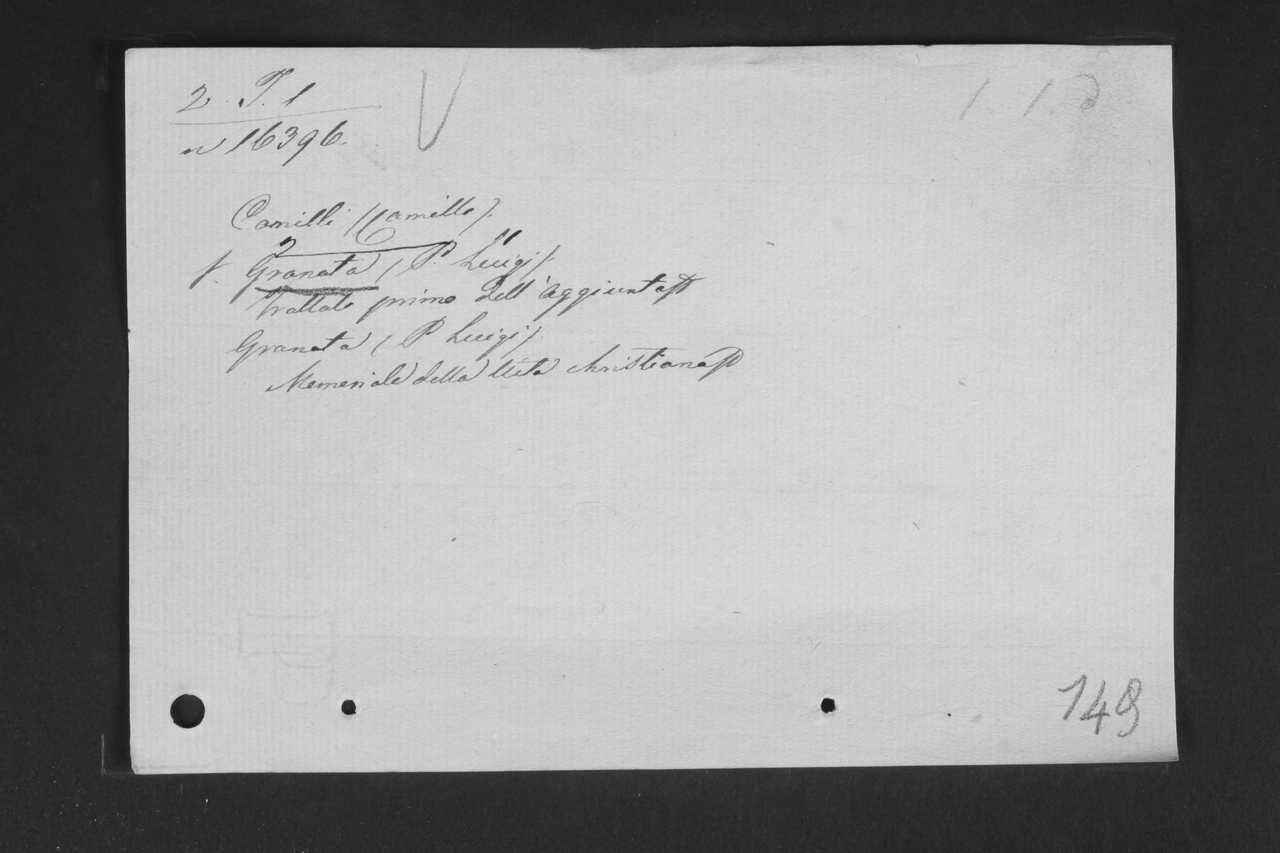 2. T. 1
n 16396.
Camilli (Camillo).
f. Granata (P. Luigi)
Trattato primo dell'aggiunta
Granata (P. Luigi).
Memoriale della Uita christiana
149